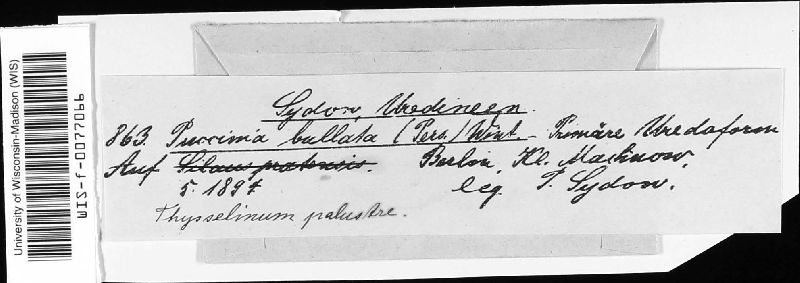 University of Wisconsin-Madison (WIS)
WIS-f-0077066
Sydow, Uredineen.
863. Puccinia bullata (Pers.) Wint. – Primäre Uredoform
Auf Silaus pratensis. Berlin, Kl. Machnow,
5. 1894 leg. P. Sydow.
Thysselinum palustre.